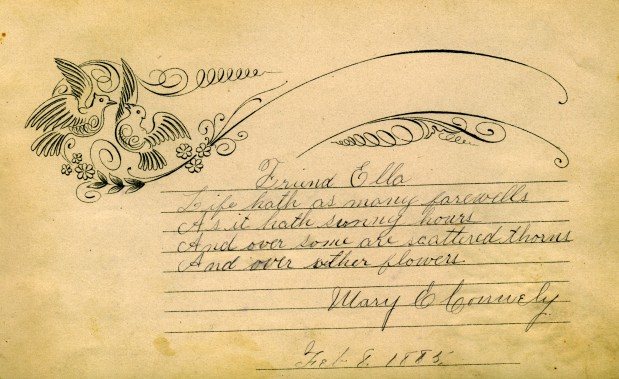 Friend Ella
Life hath as many farewells
As it hath sunny hours
And over some are scattered thorns
And over other flowers.
Mary E Connely
Feb 8. 1885.